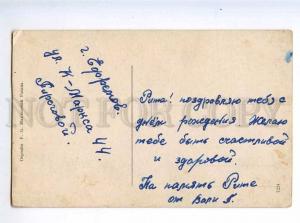 г. Ефремов
ул. К-Маркса 44
Пироговой.
Рита! поздравляю тебя с
днём рождения Желаю
тебе быть счастливой
и здоровой.
На память Рите
от Вали П.